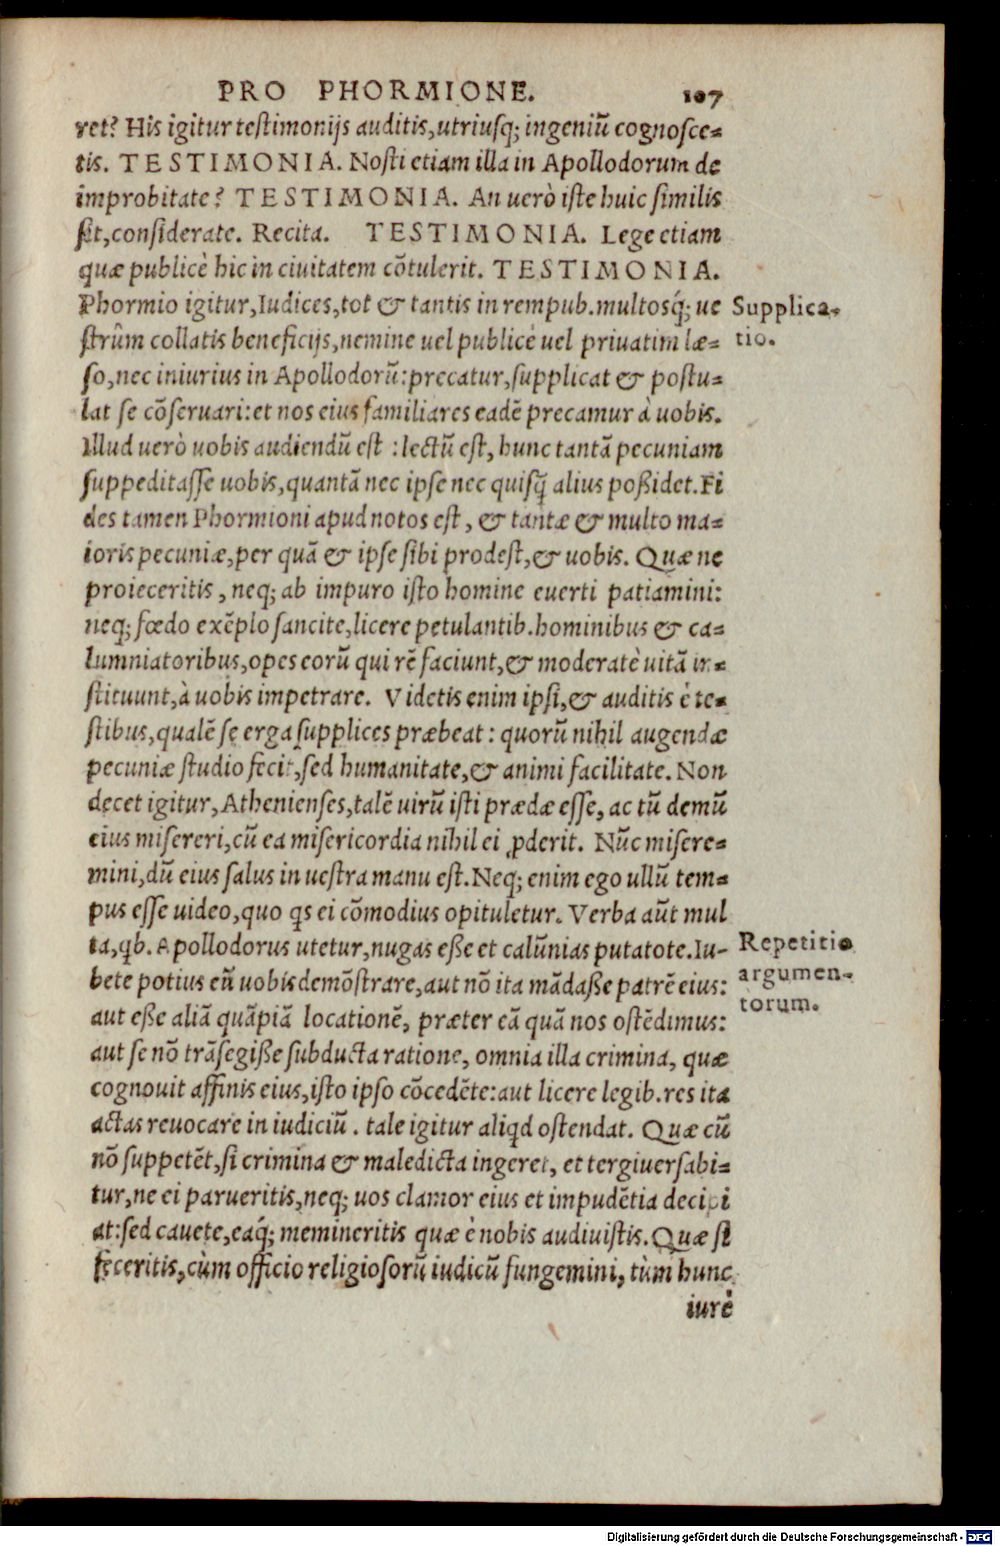 PRO PHORMIONE. 107
ret? His igitur testimonijs auditis, utriusq; ingeniũ cognosce-
tis. TESTIMONIA. Nosti etiam illa in Apollodorum de
improbitate? TESTIMONIA. An uerò iste huic similis
sit, considerate. Recita. TESTIMONIA. Lege etiam
quæ publicè hic in ciuitatem cõtulerit. TESTIMONIA.
Phormio igitur, Iudices, tot & tantis in rempub. multosq́; ue
Supplica-
strûm collatis beneficijs, nemine uel publicè uel priuatim læ-
tio.
so, nec iniurius in Apollodorũ: precatur, supplicat & postu-
lat se cõseruari: et nos eius familiares eadẽ precamur à uobis.
Illud uerò uobis audiendũ est : lectũ est, hunc tantã pecuniam
suppeditasse uobis, quantã nec ipse nec quisq̃ alius poßidet. Fi
des tamen Phormioni apud notos est, & tantæ & multo ma-
ioris pecuniæ, per quã & ipse sibi prodest, & uobis. Quæ ne
proieceritis, neq; ab impuro isto homine euerti patiamini:
neq; fœdo exẽplo sancite, licere petulantib. hominibus & ca-
lumniatoribus, opes eorũ qui rẽ faciunt, & moderatè uitã in-
stituunt, à uobis impetrare. Videtis enim ipsi, & auditis è te-
stibus, qualẽ se erga supplices præbeat : quorũ nihil augendæ
pecuniæ studio fecit, sed humanitate, & animi facilitate. Non
decet igitur, Athenienses, talẽ uirũ isti prædæ esse, ac tũ demũ
eius misereri, cũ ea misericordia nihil ei ꝓderit. Nũc misere-
mini, dũ eius salus in uestra manu est. Neq; enim ego ullũ tem-
pus esse uideo, quo qs ei cõmodius opituletur. Verba aũt mul
ta, qb. Apollodorus utetur, nugas eße et calũnias putatote. Iu-
Repetitio
bete potius eũ uobis demõstrare, aut nõ ita mãdaße patrẽ eius:
argumen-
aut eße aliã quãpiã locationẽ, præter eã quã nos ostẽdimus:
torum.
aut se nõ trãsegiße subducta ratione, omnia illa crimina, quæ
cognouit affinis eius, isto ipso cõcedẽte: aut licere legib. res ita
actas reuocare in iudiciũ. tale igitur aliqd ostendat. Quæ cũ
nõ suppetẽt, si crimina & maledicta ingeret, et tergiuersabi-
tur, ne ei parueritis, neq; uos clamor eius et impudẽtia decipi
at: sed cauete, eaq́; memineritis quæ è nobis audiuistis. Quæ si
feceritis, cùm officio religiosorũ iudicũ fungemini, tùm hunc
iurè
Digitalisierung gefördert durch die Deutsche Forschungsgemeinschaft - DFG